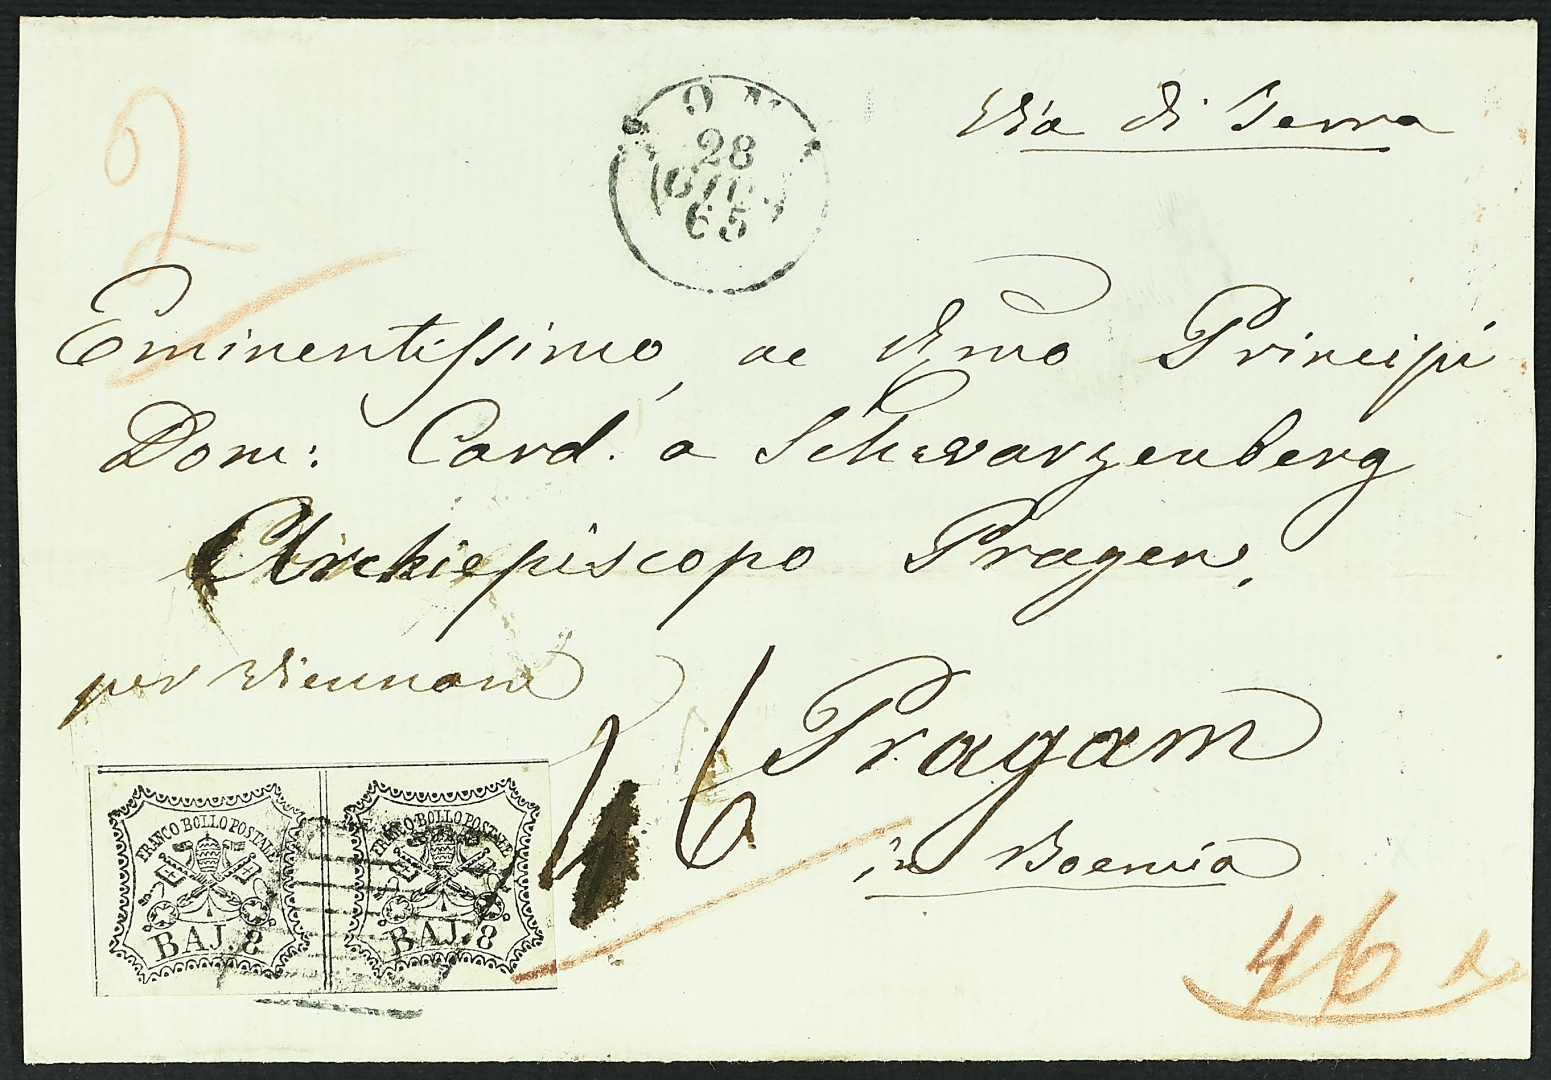 2
Via di Terra
28
GIU.
65
Eminentissimo, ac Rmo Principi
Dom: Card. a Schwarzenberg
Archiepiscopo Pragen,
per Viennam
Pragam
in Boemia
46
46
FRANCO BOLLO POSTALE
BAJ. 8
FRANCO BOLLO POSTALE
BAJ. 8